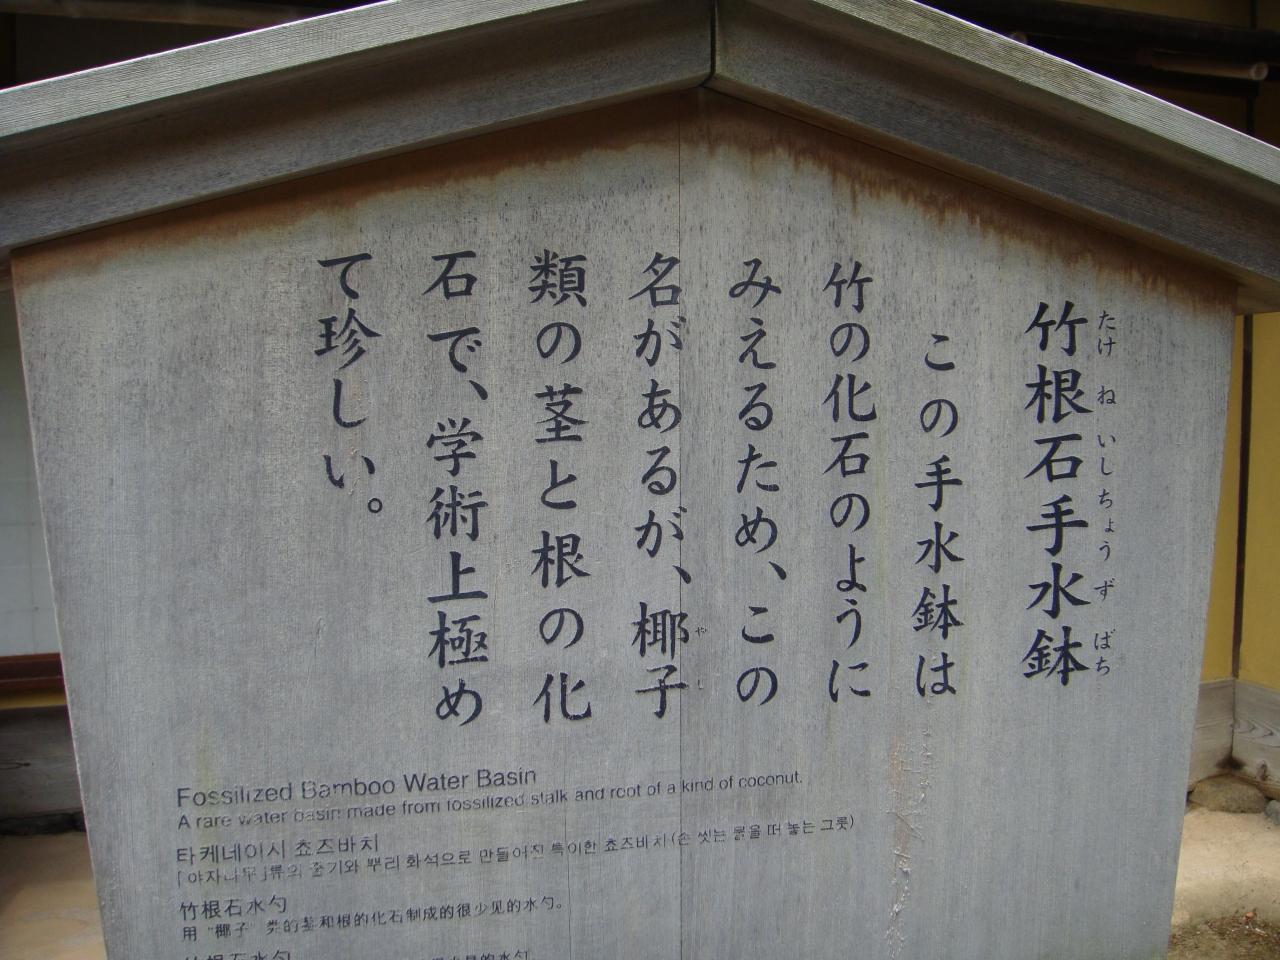 竹根石手水鉢
たけ ね いし ちょう ず ばち
この手水鉢は
竹の化石のように
みえるため、この
名があるが、椰子
や し
類の茎と根の化
石で、学術上極め
て珍しい。
Fossilized Bamboo Water Basin
A rare water basin made from fossilized stalk and root of a kind of coconut.
타케네이시 쵸즈바치
「야자나무」류의 줄기와 뿌리 화석으로 만들어진 특이한 쵸즈바치(손 씻는 물을 떠 놓는 그릇)
竹根石水勺
用"椰子"类的茎和根的化石制成的很少见的水勺。
竹根石水勺